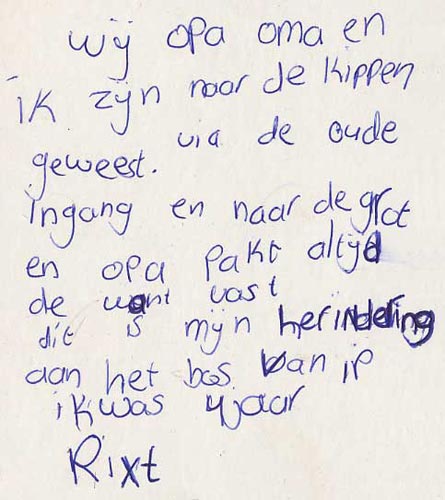 wij opa oma en
ik zijn naar de kippen
geweest. via de oude
ingang en naar de grot
en opa pakt altijd
de want vast
dit is mijn herindering
aan het bos van ip
ik was 4 jaar
Rixt